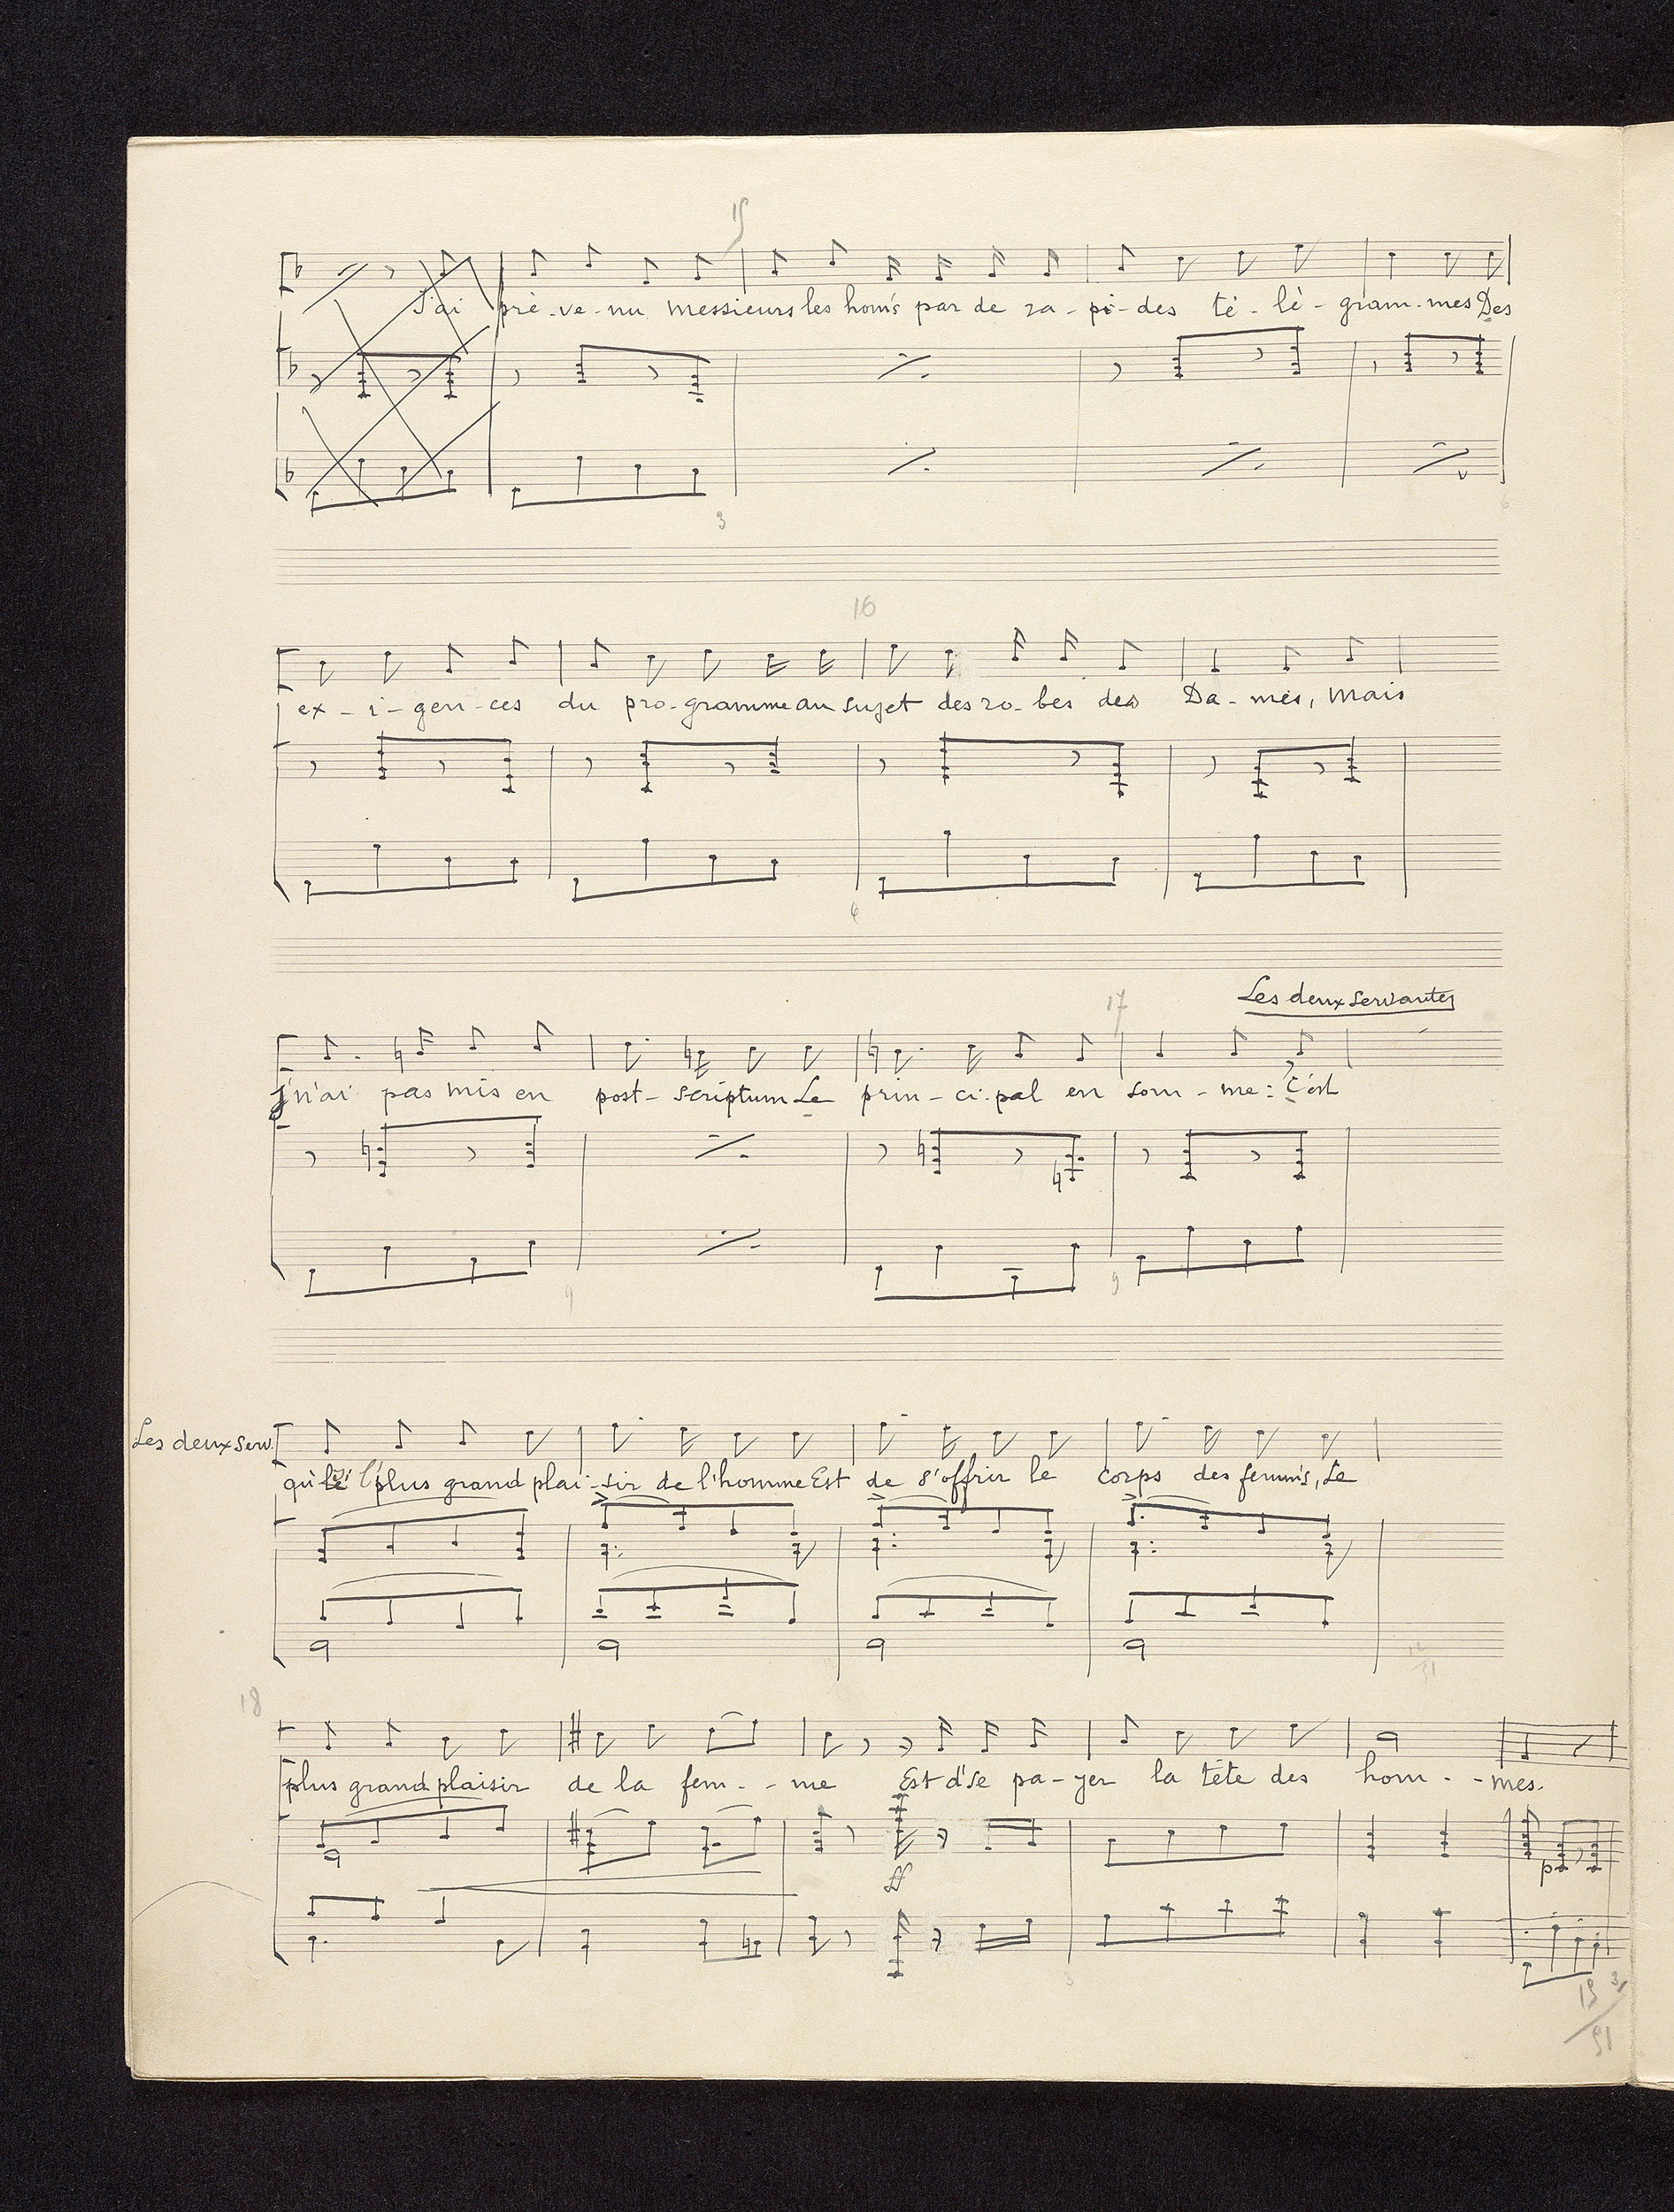 15
J'ai pré-ve-nu messieurs les hom's par de ra-pi-des té-lé-gram-mes Des
3
6
16
ex-i-gen-ces du pro-gramme au sujet des ro-bes des Da-mes, Mais
6
17
Les deux servantes
j'n'ai pas mis en post-scriptum Le prin-ci-pal en som-me: C'est
9
9
Les deux serv.
qu' l'plus grand plai-sir de l'homme Est de s'offrir le corps des femm's, Le
18
plus grand plaisir de la fem--me Est d'se pa-yer la tête des hom--mes.
ff
p
3